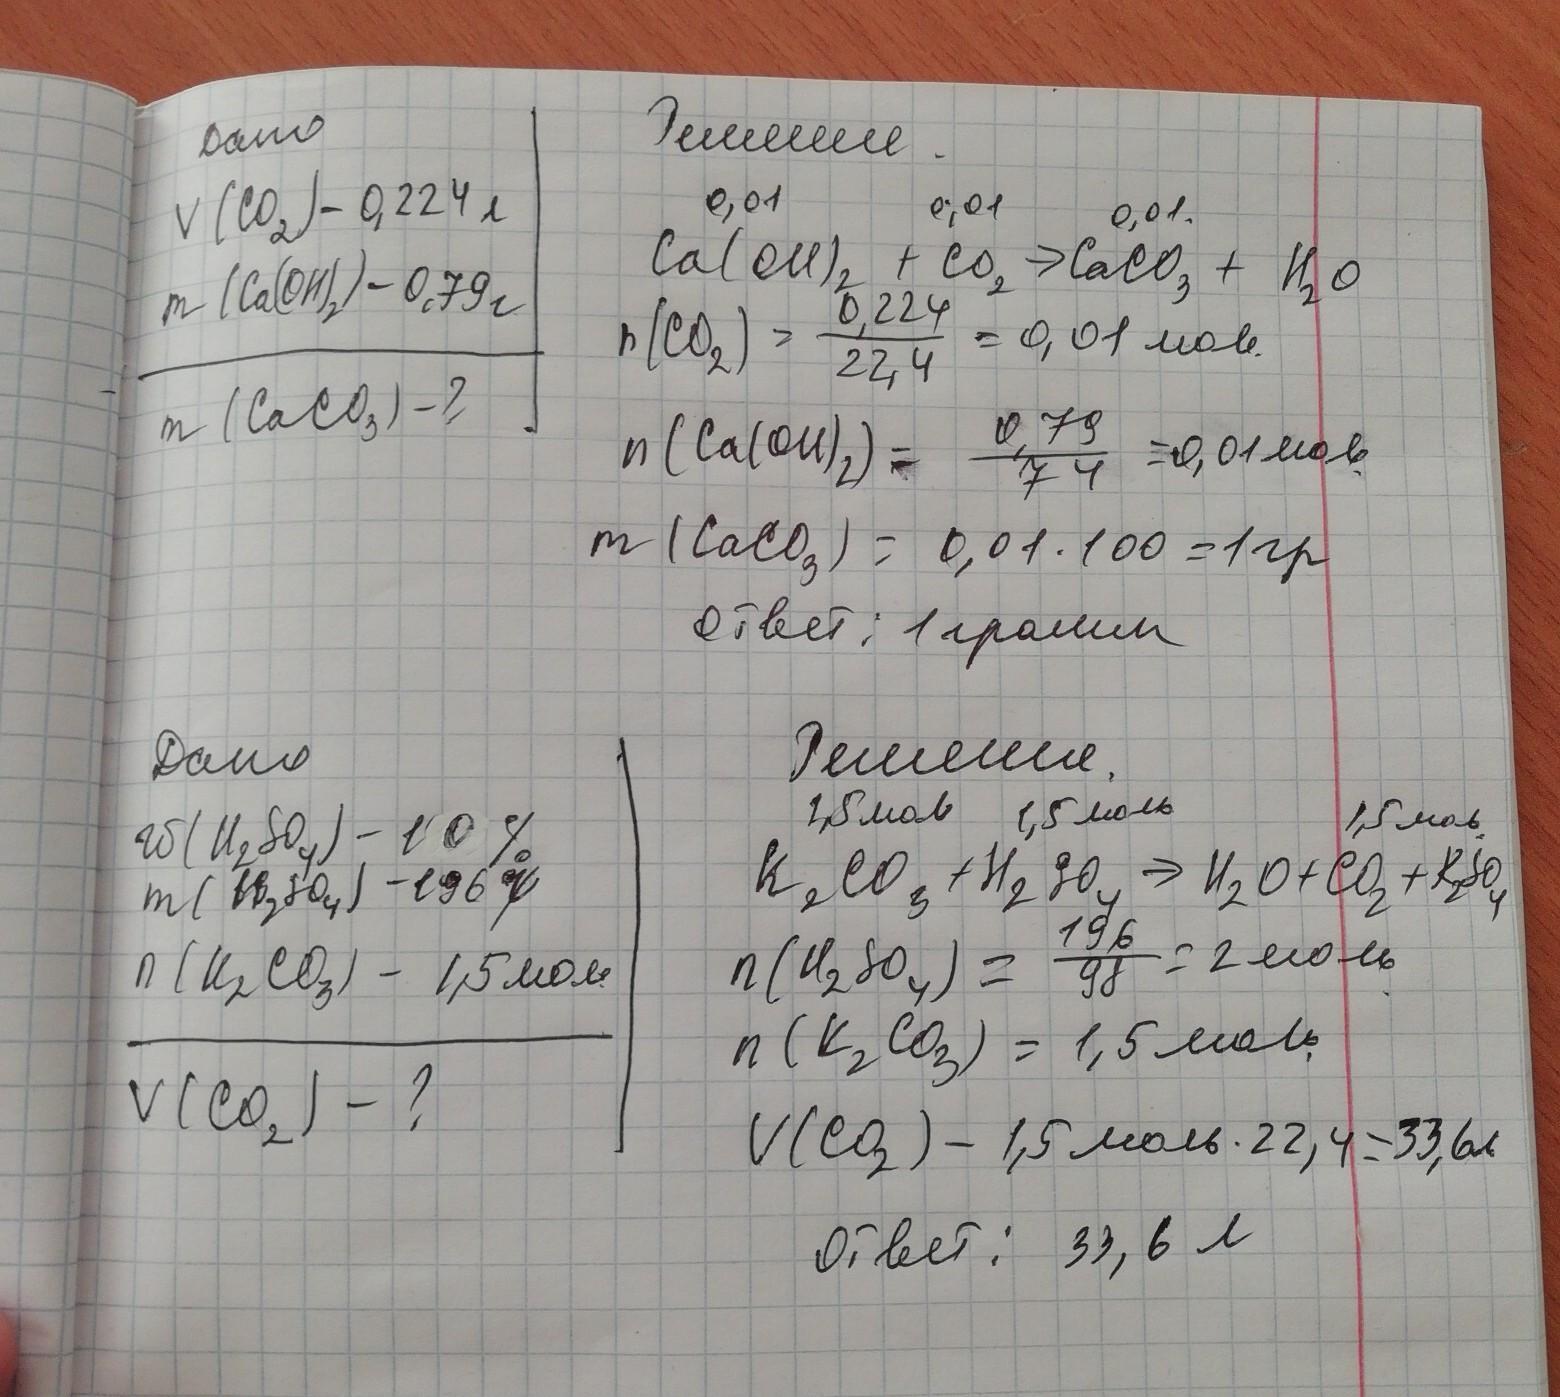 Дано
V(CO₂) – 0,224 л
m(Ca(OH)₂) – 0,79 г
m(CaCO₃) – ?
Решение.
0,01 0,01 0,01.
Ca(OH)₂ + CO₂ → CaCO₃ + H₂O
n(CO₂) = 0,224 / 22,4 = 0,01 моль.
n(Ca(OH)₂) = 0,79 / 74 = 0,01 моль.
m(CaCO₃) = 0,01 · 100 = 1 гр
Ответ: 1 грамм
Дано
ω(H₂SO₄) – 10 %
m(H₂SO₄) – 196
n(K₂CO₃) – 1,5 моль
V(CO₂) – ?
Решение.
1,5 моль 1,5 моль 1,5 моль.
K₂CO₃ + H₂SO₄ → H₂O + CO₂ + K₂SO₄
n(H₂SO₄) = 196 / 98 = 2 моль.
n(K₂CO₃) = 1,5 моль.
V(CO₂) – 1,5 моль · 22,4 = 33,6 л
Ответ: 33,6 л